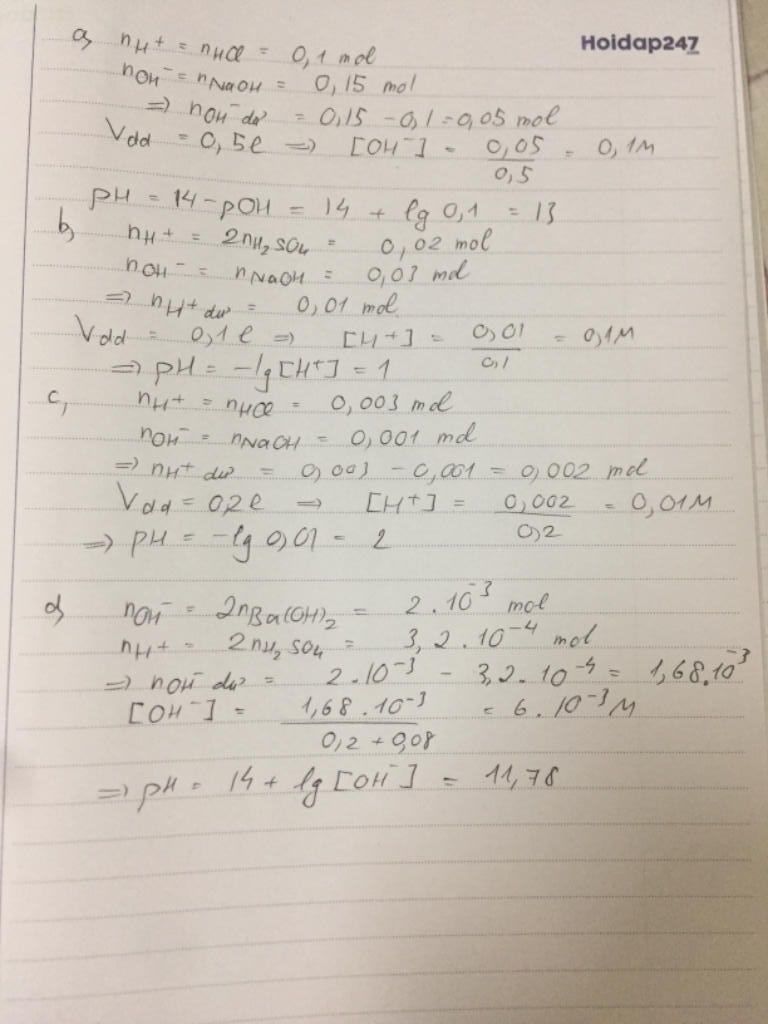 Hoidap247
a, nH+ = nHCl = 0,1 mol
nOH- = nNaOH = 0,15 mol
=> nOH- dư = 0,15 - 0,1 = 0,05 mol
Vdd = 0,5l => [OH-] = 0,05/0,5 = 0,1M
pH = 14 - pOH = 14 + lg 0,1 = 13
b, nH+ = 2nH2SO4 = 0,02 mol
nOH- = nNaOH = 0,03 mol
=> nH+ dư = 0,01 mol
Vdd = 0,1l => [H+] = 0,01/0,1 = 0,1M
=> pH = -lg[H+] = 1
c, nH+ = nHCl = 0,003 mol
nOH- = nNaOH = 0,001 mol
=> nH+ dư = 0,003 - 0,001 = 0,002 mol
Vdd = 0,2l => [H+] = 0,002/0,2 = 0,01M
=> pH = -lg 0,01 = 2
d, nOH- = 2nBa(OH)2 = 2.10^-3 mol
nH+ = 2nH2SO4 = 3,2.10^-4 mol
=> nOH- dư = 2.10^-3 - 3,2.10^-4 = 1,68.10^-3
[OH-] = 1,68.10^-3/0,2 + 0,08 = 6.10^-3 M
=> pH = 14 + lg[OH-] = 11,78